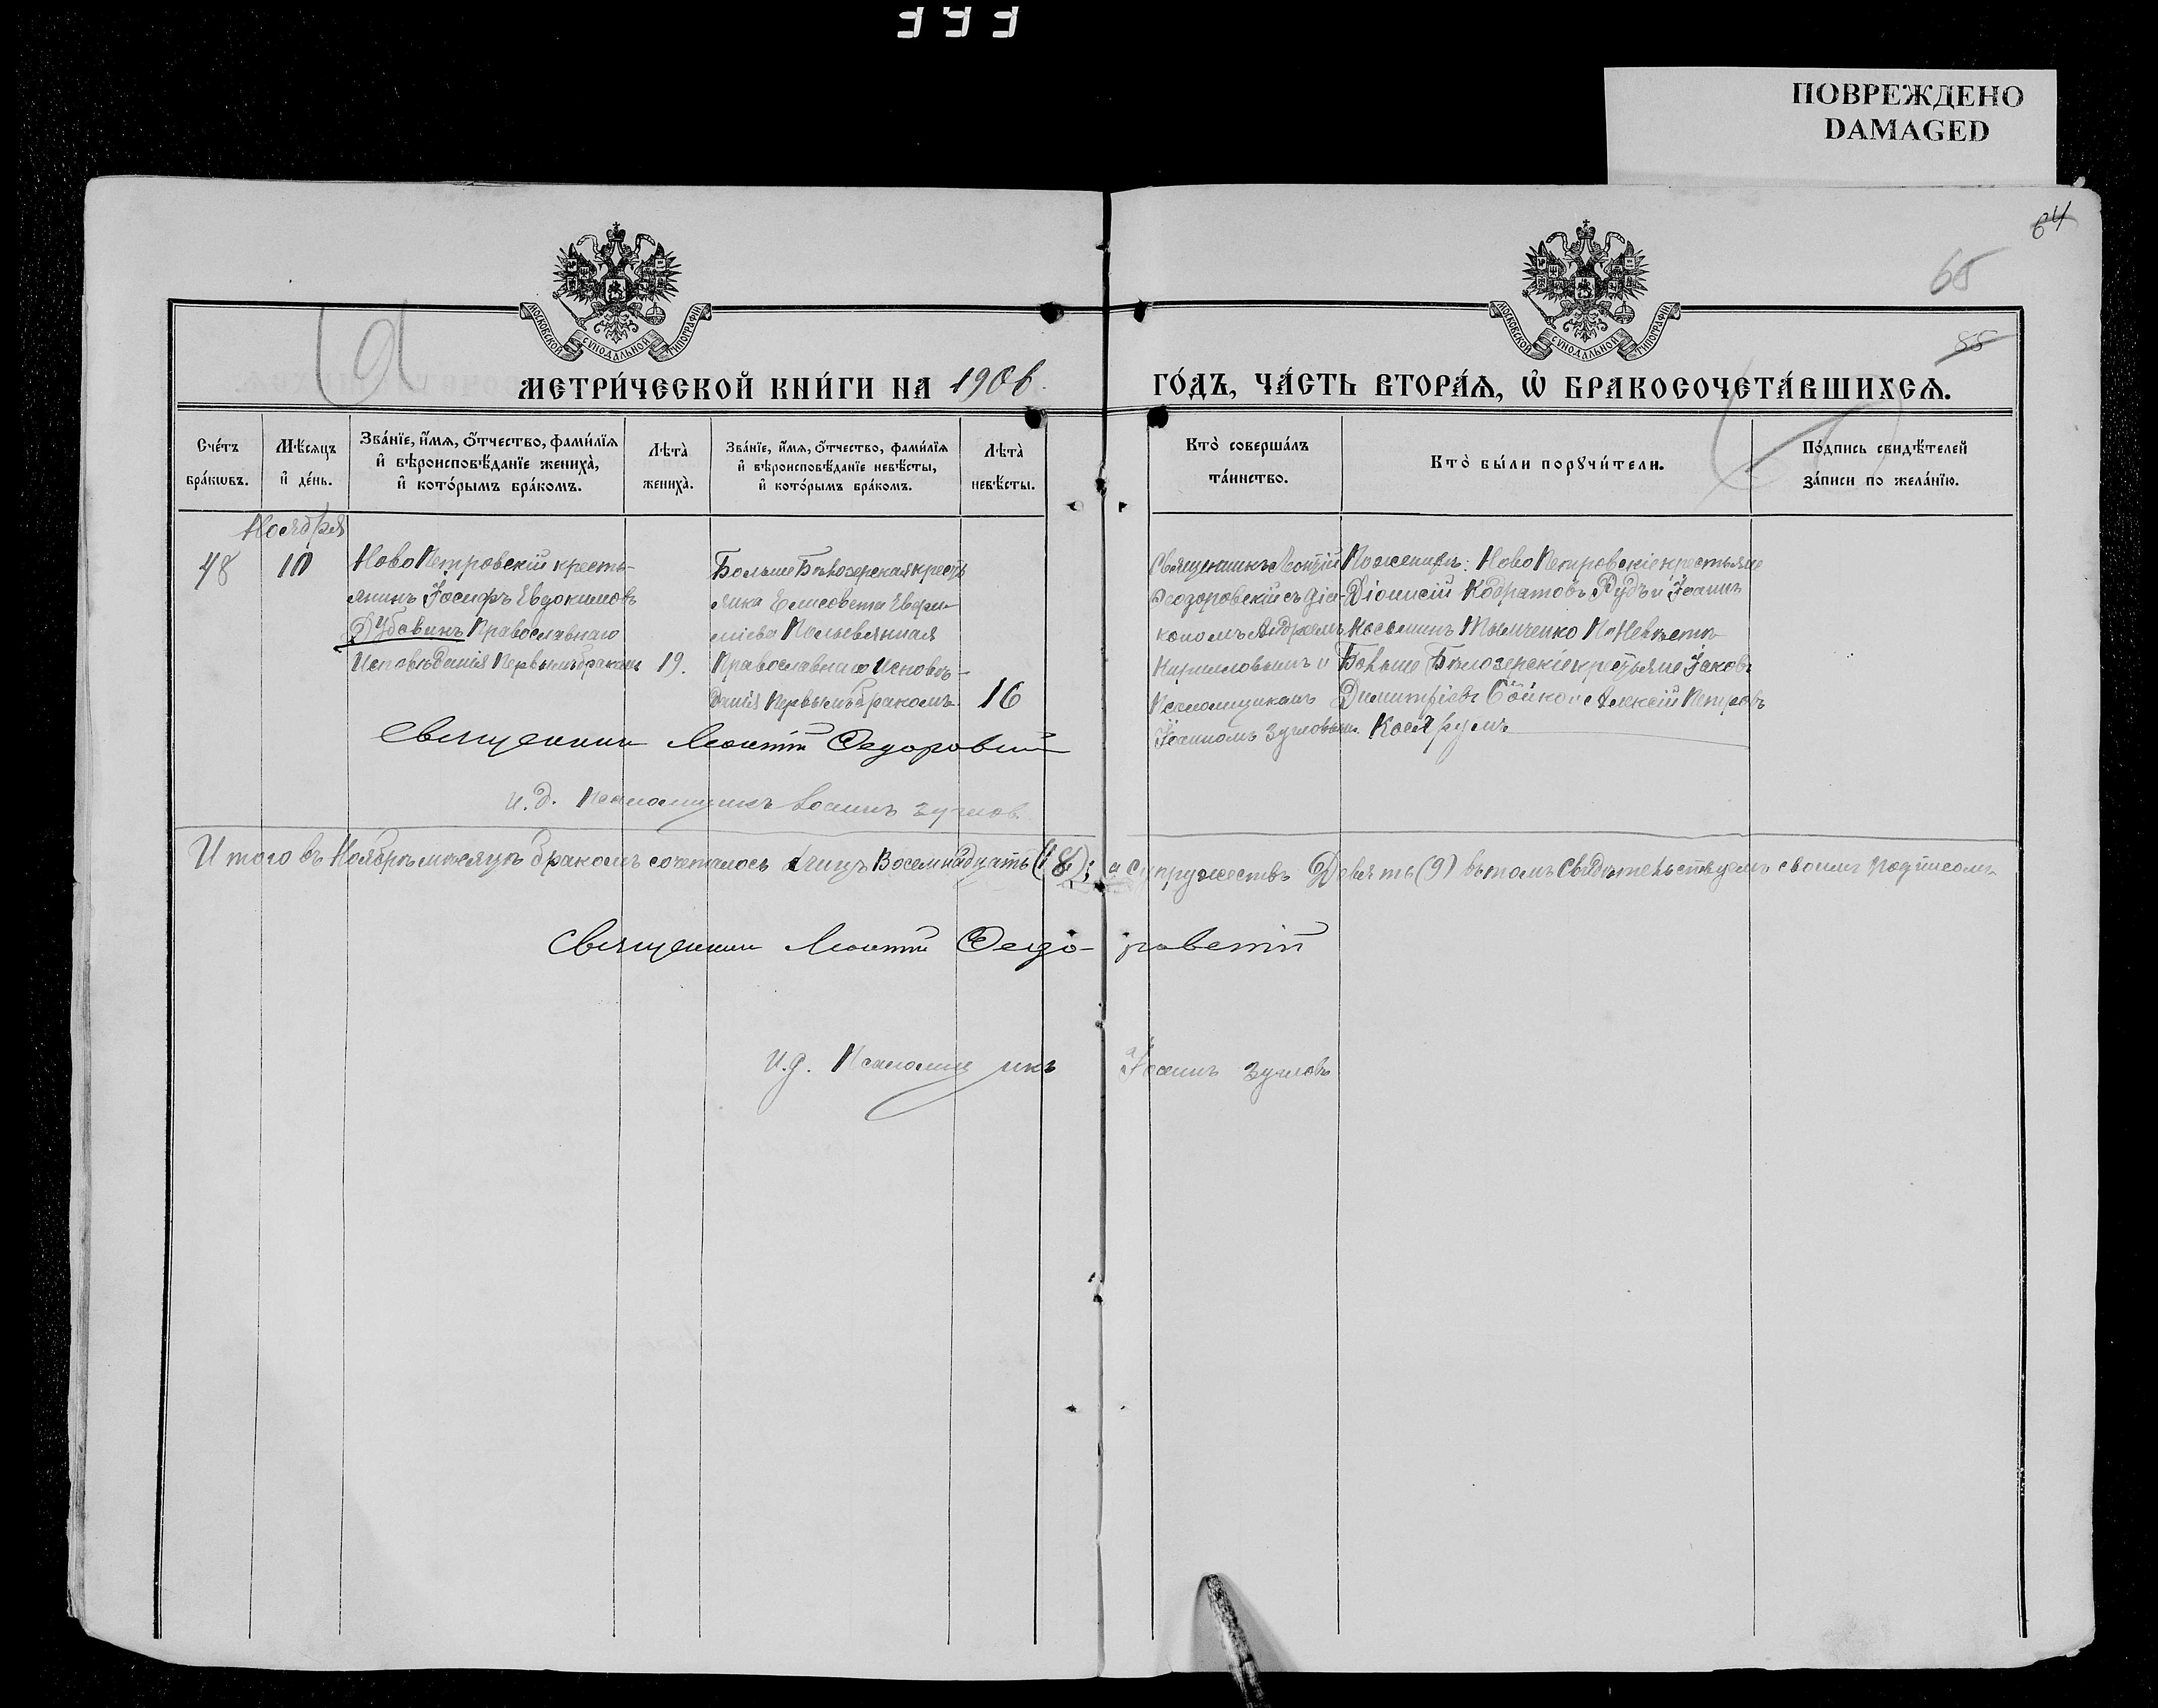 ПОВРЕЖДЕНО
DAMAGED
64
65
55
МОСКОВСКОЙ СУНОДАЛЬНОЙ ТИПОГРАФІИ
МОСКОВСКОЙ СУНОДАЛЬНОЙ ТИПОГРАФІИ
МЕТРИ́ЧЕСКОЙ КНИ́ГИ НА 1906
ГО́ДЪ, ЧА́СТЬ ВТОРА́Ѧ, Ѡ҆ БРАКОСОЧЕТА́ВШИХСѦ.
Сче́тъ бра́кѡвъ.
Мѣ́сѧцъ и҆ де́нь.
Зва́нїе, и҆́мѧ, ѻ҆́тчество, фами́лїѧ и҆ вѣроисповѣ́данїе жениха̀, и҆ кото́рымъ бра́комъ.
Лѣта̀ жениха̀.
Зва́нїе, и҆́мѧ, ѻ҆́тчество, фами́лїѧ и҆ вѣроисповѣ́данїе невѣ́сты, и҆ кото́рымъ бра́комъ.
Лѣта̀ невѣ́сты.
Кто̀ соверша́лъ та́инство.
Кто̀ бы́ли порꙋчи́тели.
По́дпись свидѣ́телей за́писи по жела́нїю.
Ноября
48
10
НовоПетровскій кресть-
янинъ Іосифъ Евдокимовъ
Дубовинъ Православнаго
Исповѣданія Первымъ бракомъ
19.
Больше Бѣлозерская кресть
янка Елисовета Евфи-
міева
Православнаго Исповѣ-
данія Первымъ бракомъ
16
Священникъ Леонтій
Ѳеодоровскій съ діа-
кономъ Андреемъ
Кирилловымъ и
Псаломщикомъ
Іоанномъ Зугловым
По женихѣ: НовоПетровскіе крестьяне
Діонисій Кодратовъ Рудъ и Іоаннъ
Косьминъ Тымченко По Невѣстѣ
Больше Бѣлозерскіе крестьяне Іаковъ
Димитріевъ Бойко и Алексій Петровъ
Священник Леонтій Ѳедоровскій
и. д. Псаломщикъ Іоаннъ Зуглов.
Итого въ Ноябрѣ мѣсяцѣ бракомъ сочеталось Лицъ Восемнадцать (18); а супружествъ Девять (9) въ томъ Свидѣтельствуемъ своимъ подписомъ
Священник Леонтій Ѳедо-ровскій
И.д. Псаломщикъ Іоаннъ Зугловъ